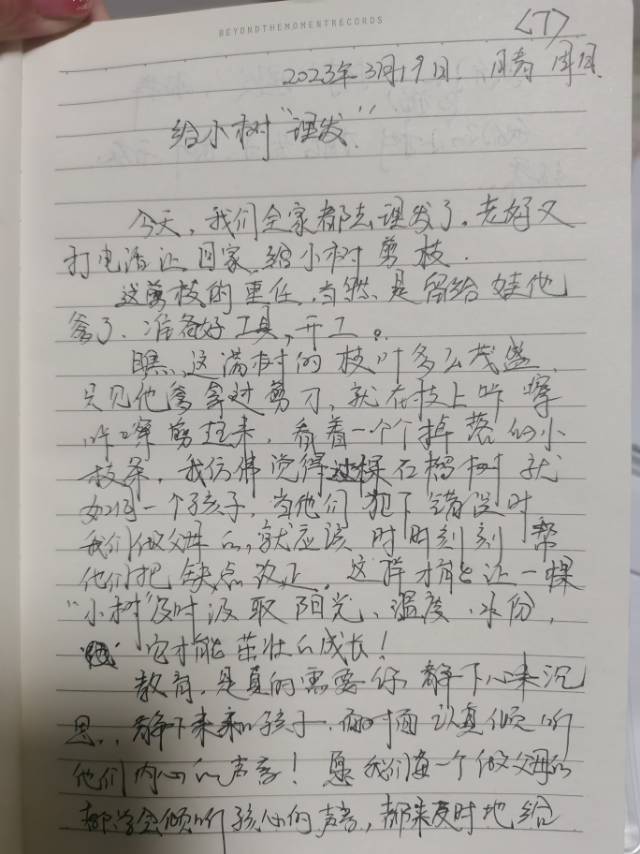 BEYONDTHEMOMENTRECORDS
<7>
2023年3月19日 周日
给小树“理发”
今天，我们全家都去理发了，老好又
打电话让回家给小树剪枝.
这剪枝的重任，当然是留给娃他
爹了．准备好工具，开工。
瞧，这满树的枝叶多么茂盛，
只见他爹拿过剪刀，就在枝上咔嚓
咔嚓剪起来，看着一个个掉落的小
枝条，我仿佛觉得这棵石榴树就
如同一个孩子，当他们犯下错误时
我们做父母的，就应该时时刻刻帮
他们把缺点改正．这样才能让一棵
“小树”及时汲取阳光、温度、水份，
它才能茁壮的成长！
教育，是真的需要你静下心来沉
思．静下来和孩子面对面认真倾听
他们内心的声音！愿我们每一个做父母的
都学会倾听孩心的声音，都来及时地给